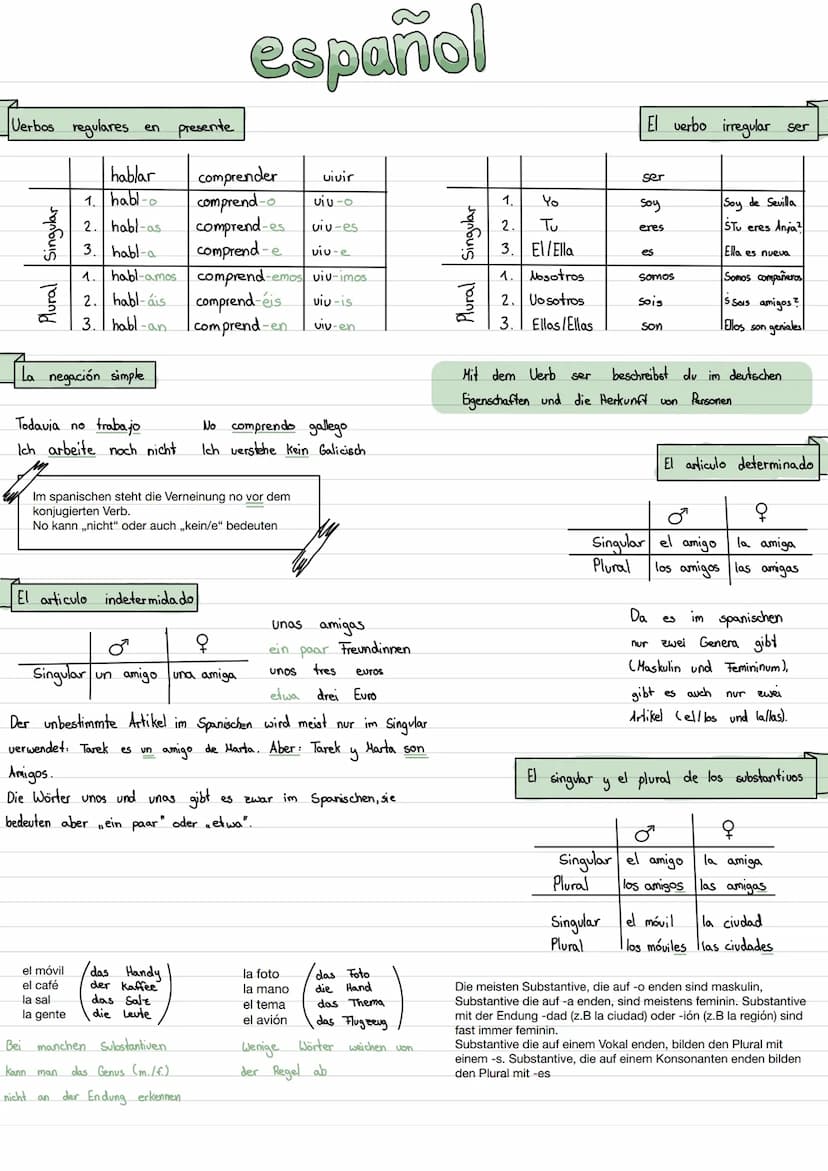 español
Verbos regulares en presente
hablar comprender vivir
Singular
1. habl-o comprend-o viv-o
2. habl-as comprend-es viv-es
3. habl-a comprend-e viv-e
Plural
1. habl-amos comprend-emos viv-imos
2. habl-áis comprend-éis viv-is
3. habl-an comprend-en viv-en
El verbo irregular ser
ser
Singular
1. Yo soy Soy de Sevilla
2. Tu eres ¿Tu eres Anja?
3. El/Ella es Ella es nueva
Plural
1. Nosotros somos Somos compañeros
2. Vosotros sois ¿Sois amigos?
3. Ellos/Ellas son Ellos son geniales
La negación simple
Todavia no trabajo No comprendo gallego
Ich arbeite noch nicht Ich verstehe kein Galicisch
Im spanischen steht die Verneinung no vor dem
konjugierten Verb.
No kann „nicht“ oder auch „kein/e“ bedeuten
Mit dem Verb ser beschreibst du im deutschen
Eigenschaften und die Herkunft von Personen
El articulo determinado
♂ ♀
Singular el amigo la amiga
Plural los amigos las amigas
Da es im spanischen
nur zwei Genera gibt
(Maskulin und Femininum),
gibt es auch nur zwei
Artikel (el/los und la/las).
El articulo indetermidado
♂ ♀
Singular un amigo una amiga
unas amigas
ein paar Freundinnen
unos tres euros
etwa drei Euro
Der unbestimmte Artikel im Spanischen wird meist nur im Singular
verwendet: Tarek es un amigo de Marta. Aber: Tarek y Marta son
Amigos.
Die Wörter unos und unas gibt es zwar im Spanischen, sie
bedeuten aber „ein paar" oder „etwa".
El singular y el plural de los substantivos
♂ ♀
Singular el amigo la amiga
Plural los amigos las amigas
Singular el móvil la ciudad
Plural los móviles las ciudades
el móvil (das Handy)
el café der Kaffee
la sal das Salz
la gente die Leute
Bei manchen Substantiven
kann man das Genus (m./f.)
nicht an der Endung erkennen
la foto (das Foto)
la mano die Hand
el tema das Thema
el avión das Flugzeug
Wenige Wörter weichen von
der Regel ab
Die meisten Substantive, die auf -o enden sind maskulin,
Substantive die auf -a enden, sind meistens feminin. Substantive
mit der Endung -dad (z.B la ciudad) oder -ión (z.B la región) sind
fast immer feminin.
Substantive die auf einem Vokal enden, bilden den Plural mit
einem -s. Substantive, die auf einem Konsonanten enden bilden
den Plural mit -es